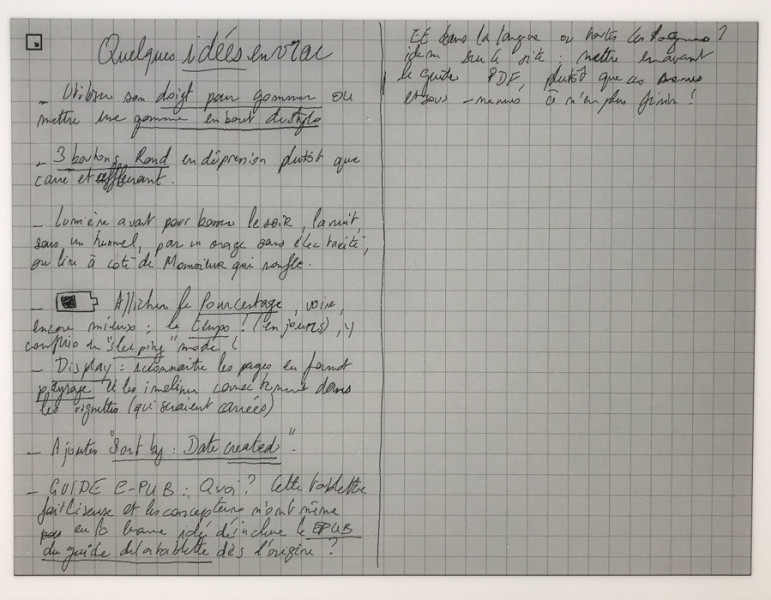 Quelques idées en vrac
_ Utiliser son doigt pour gommer ou
mettre une gomme en bout du stylo
_ 3 boutons Rond en dépression plutôt que
carré et affleurant.
_ Lumière avant pour bosser le soir, la nuit,
sous un tunnel, par un orage sans électricité,
ou lire à coté de Monsieur qui ronfle.
_ Afficher le Pourcentage, voire,
encore mieux : le temps ! (en jours), y
compris en "sleeping" mode !
_ Display : reconnaitre les pages en format
paysage et les incliner correctement dans
les vignettes (qui seraient carrées)
_ Ajouter "Sort by : Date created".
_ GUIDE E-PUB : Quoi ? Cette tablette
fait liseuse et les concepteurs n'ont même
pas eu la bonne idée d'inclure le EPUB
du guide de la tablette dès l'origine ?
ET dans la langue ou toutes les langues ?
idem sur le site : mettre en avant
le guide PDF, plutôt que des menus
et sous-menus à n'en plus finir !